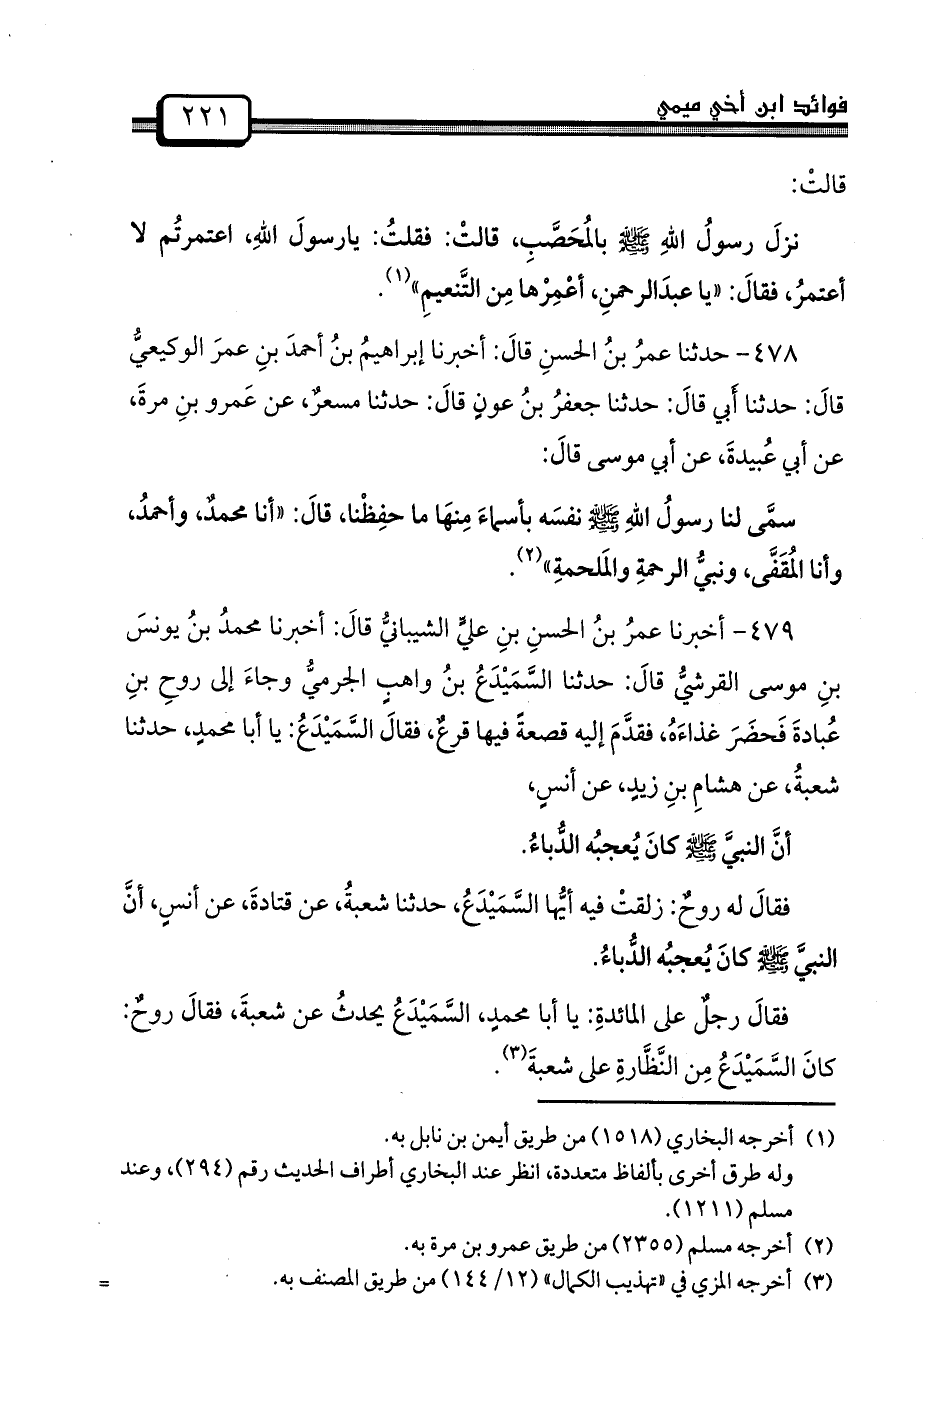 فوائد ابن أخي ميمي
٢٢١
قالتْ:
نزلَ رسولُ اللهِ ﷺ بالمُحَصَّبِ، قالتْ: فقلتُ: يارسولَ اللهِ، اعتمرتُم لا
أعتمرُ، فقالَ: «يا عبدَالرحمنِ، أعْمِرْها مِن التَّنعيمِ»(١).
٤٧٨- حدثنا عمرُ بنُ الحسنِ قالَ: أخبرنا إبراهيمُ بنُ أحمدَ بنِ عمرَ الوكيعيُّ
قالَ: حدثنا أَبي قالَ: حدثنا جعفرُ بنُ عونٍ قالَ: حدثنا مسعرٌ، عن عَمرو بنِ مرةَ،
عن أبي عُبيدةَ، عن أبي موسى قالَ:
سمَّى لنا رسولُ اللهِ ﷺ نفسَه بأسماءَ مِنهَا ما حفِظْنا، قالَ: «أنا محمدٌ، وأحمدُ،
وأنا المُقَفَّى، ونبيُّ الرحمةِ والمَلحمةِ»(٢).
٤٧٩- أخبرنا عمرُ بنُ الحسنِ بنِ عليٍّ الشيبانيُّ قالَ: أخبرنا محمدُ بنُ يونسَ
بنِ موسى القرشيُّ قالَ: حدثنا السَّمَيْدَعُ بنُ واهبٍ الجرميُّ وجاءَ إلى روحِ بنِ
عُبادةَ فَحضَرَ غذاءَهُ، فقدَّمَ إليه قصعةً فيها قرعٌ، فقالَ السَّمَيْدَعُ: يا أبا محمدٍ، حدثنا
شعبةُ، عن هشامِ بنِ زيدٍ، عن أنسٍ،
أنَّ النبيَّ ﷺ كانَ يُعجبُه الدُّباءُ.
فقالَ له روحٌ: زلقتْ فيه أيُّها السَّمَيْدَعُ، حدثنا شعبةُ، عن قتادةَ، عن أنسٍ، أنَّ
النبيَّ ﷺ كانَ يُعجبُه الدُّباءُ.
فقالَ رجلٌ على المائدةِ: يا أبا محمدٍ، السَّمَيْدَعُ يحدثُ عن شعبةَ، فقالَ روحٌ:
كانَ السَّمَيْدَعُ مِن النَّظَّارةِ على شعبةَ(٣).
(١) أخرجه البخاري (١٥١٨) من طريق أيمن بن نابل به.
وله طرق أخرى بألفاظ متعددة، انظر عند البخاري أطراف الحديث رقم (٢٩٤)، وعند
مسلم (١٢١١).
(٢) أخرجه مسلم (٢٣٥٥) من طريق عمرو بن مرة به.
(٣) أخرجه المزي في «تهذيب الكمال» (١٢/ ١٤٤) من طريق المصنف به. =